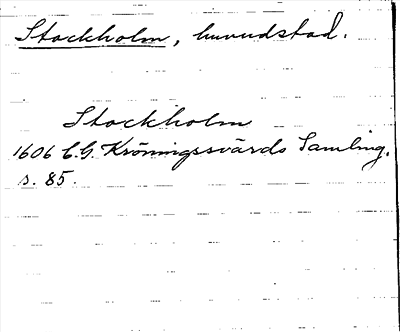 Stockholm, huvudstad.
Stockholm
1606 C.G. Kröningssvärds Samling.
s. 85.